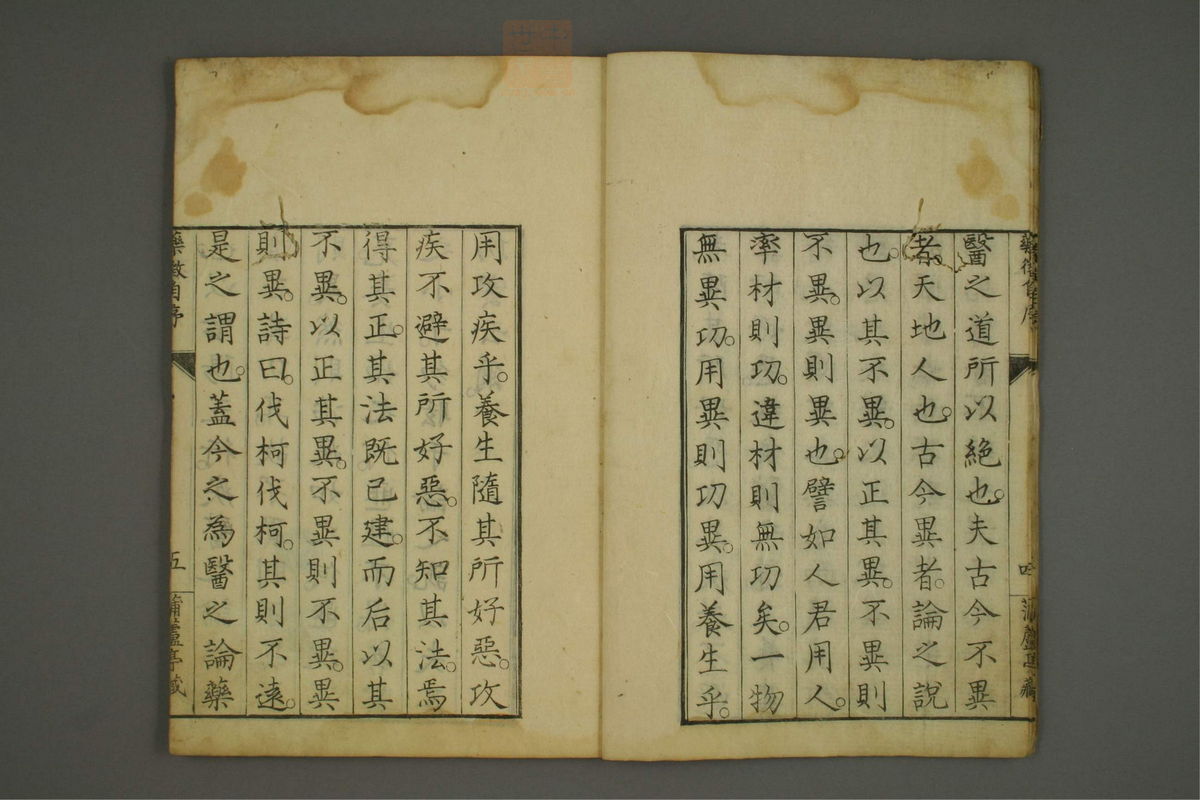 醫之道所以絕也。夫古今不異
者。天地人也。古今異者。論之說
也。以其不異。以正其異。不異則
不異。異則異也。譬如人君用人。
率材則功。違材則無功矣。一物
無異功。用異則功異。用養生乎。
用攻疾乎。養生隨其所好惡。攻
疾不避其所好惡。不知其法。焉
得其正。其法既已建。而后以其
不異。以正其異。不異則不異。異
則異。詩曰。伐柯伐柯。其則不遠。
是之謂也。蓋今之為醫之論藥
藥徵自序
五
蒲蘆亭藏